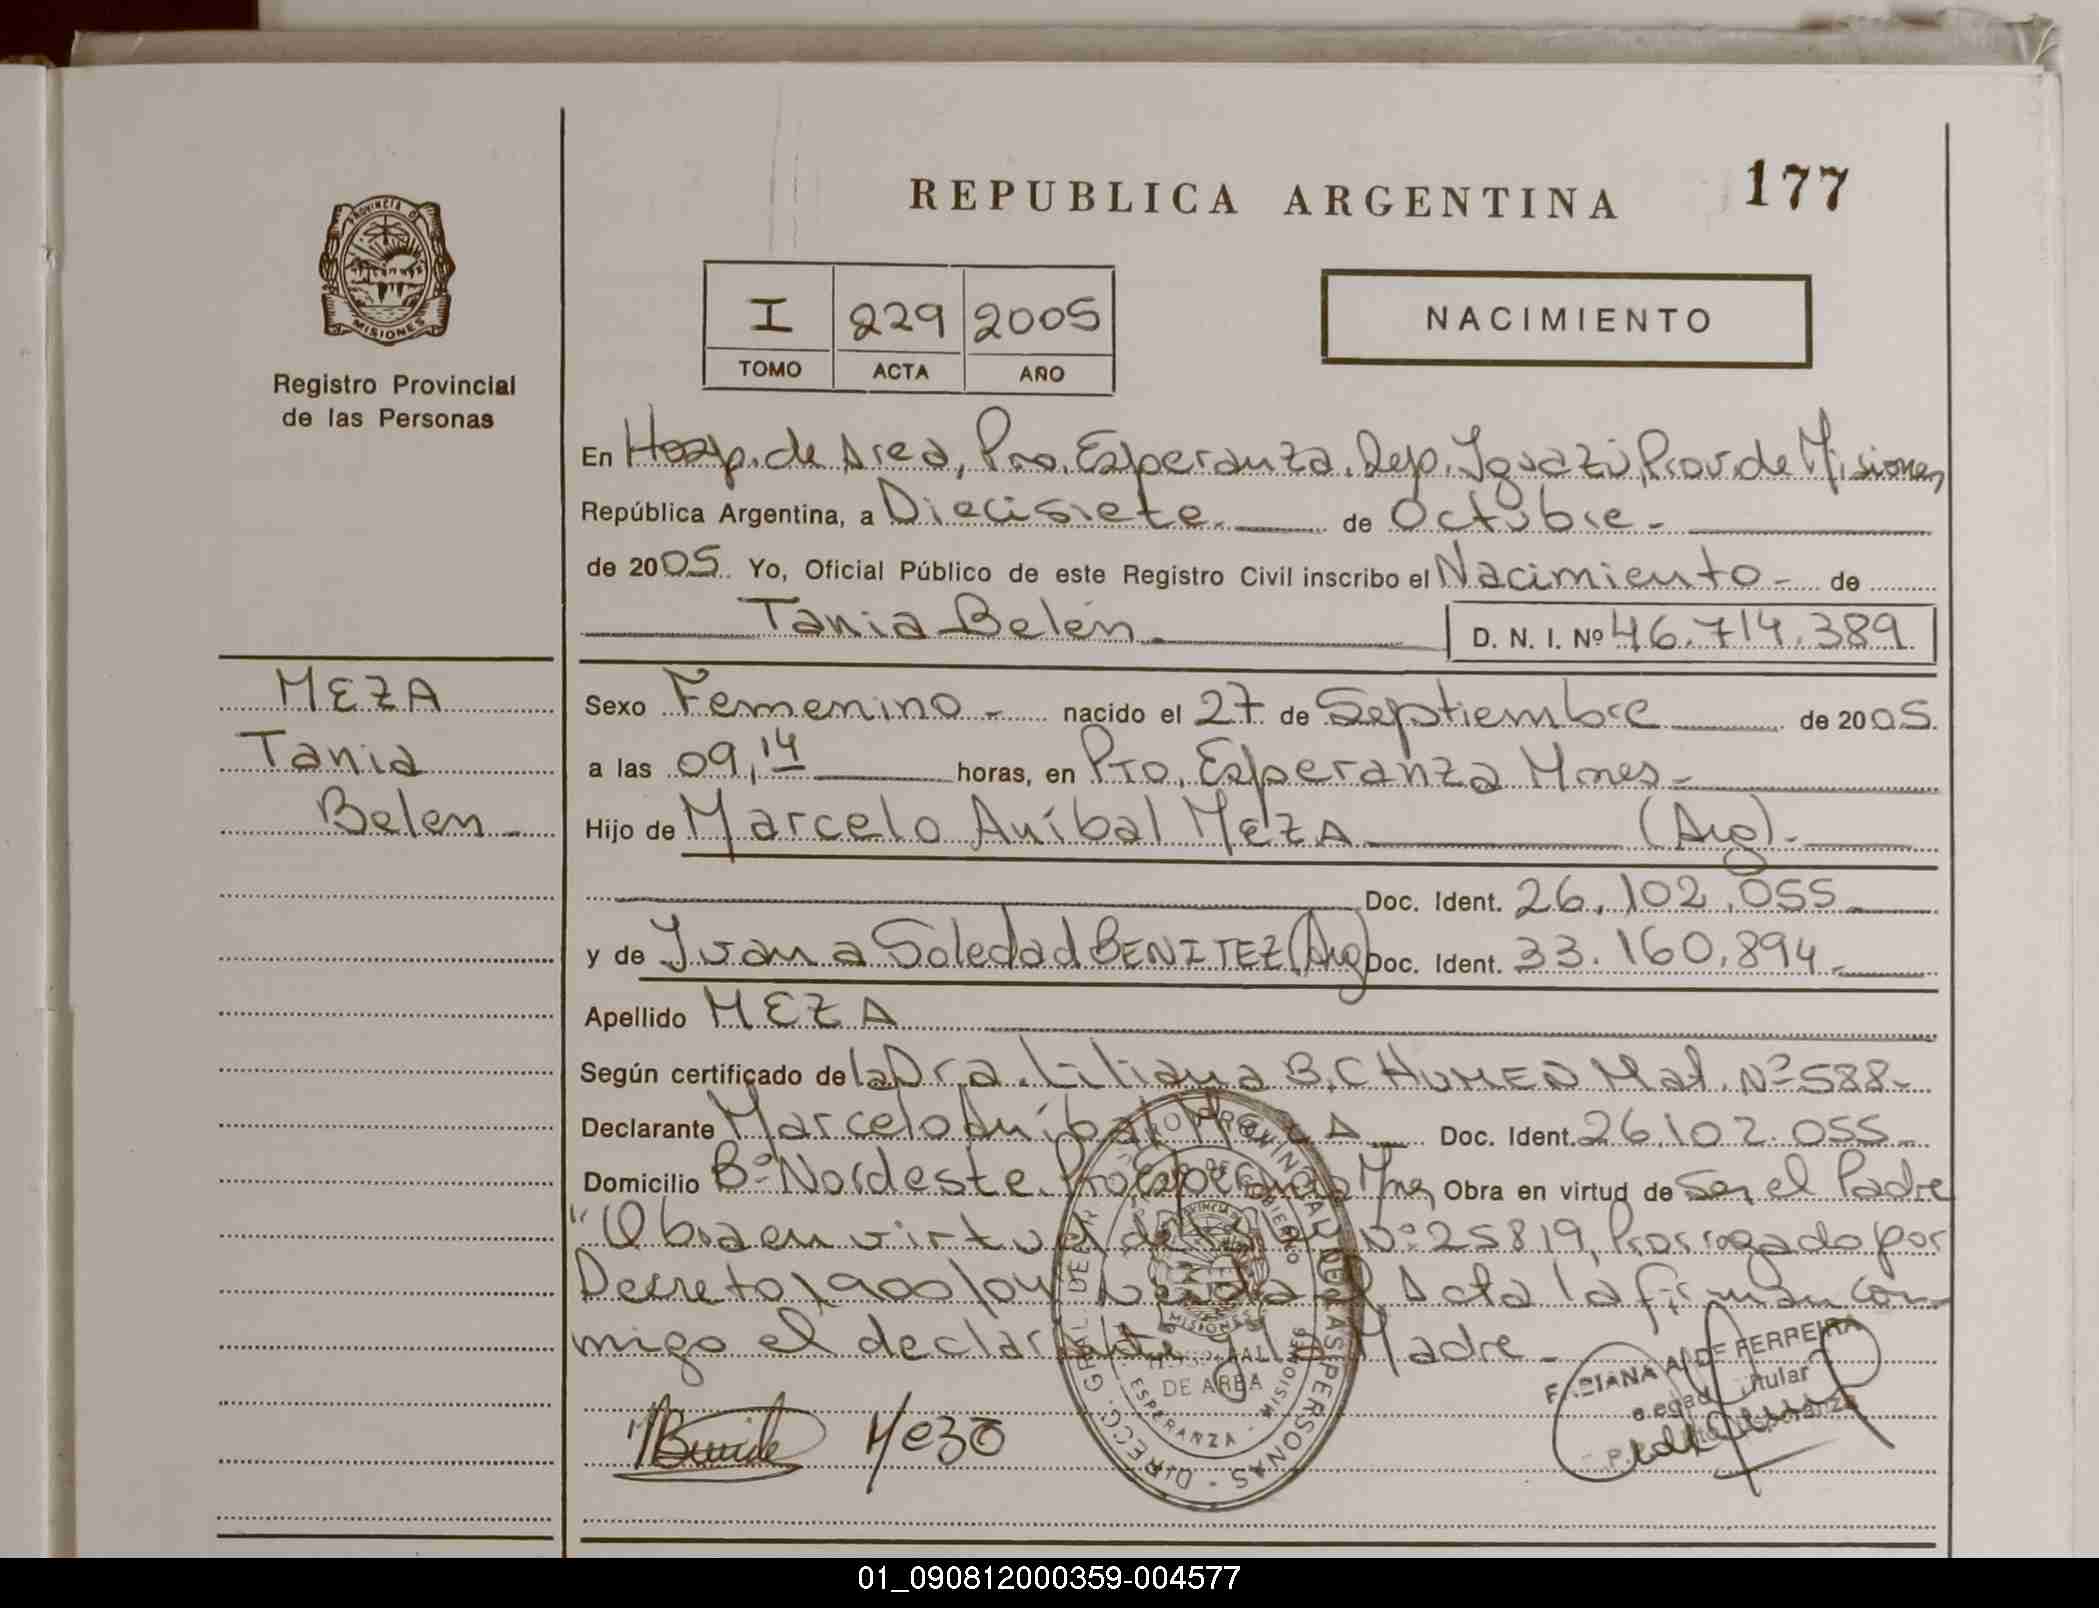 REPUBLICA ARGENTINA
177
PROVINCIA DE
MISIONES
Registro Provincial
de las Personas
I 229 2005
TOMO ACTA AÑO
NACIMIENTO
En Hosp. de Area, Pto. Esperanza. Dep. Iguazú, Prov. de Misiones,
República Argentina, a Diecisiete. de Octubre.-
de 2005. Yo, Oficial Público de este Registro Civil inscribo el Nacimiento - de
Tania Belén.
D. N. I. Nº 46.714.389
MEZA
Tania
Belen -
Sexo Femenino - nacido el 27 de Septiembre de 2005.
a las 09,14 horas, en Pto. Esperanza Mnes.-
Hijo de Marcelo Aníbal MEZA (Arg).-
Doc. Ident. 26.102.055
y de Juana Soledad BENITEZ (Arg) Doc. Ident. 33.160.894.
Apellido MEZA
Según certificado de la Dra. Liliana B. CHUMED Mat. Nº 588.-
Declarante Marcelo Aníbal Meza Doc. Ident. 26.102.055
Domicilio Bº Nordeste. Pto Esperanza Mnes, Obra en virtud de Ser el Padre
"Obra en virtud de la Ley Nº 25819, Prorrogado por
Decreto 1900/04 Leída el Acta la firman con-
migo el declarante y la Madre -
DIRECC. GRAL. DE REGISTRO PROVINCIAL DE LAS PERSONAS
MISIONES
HOSPITAL
DE AREA
ESPERANZA - MISIONES
Meza
FABIANA A. DE FERREIRA
Titular
Esperanza
01_090812000359-004577